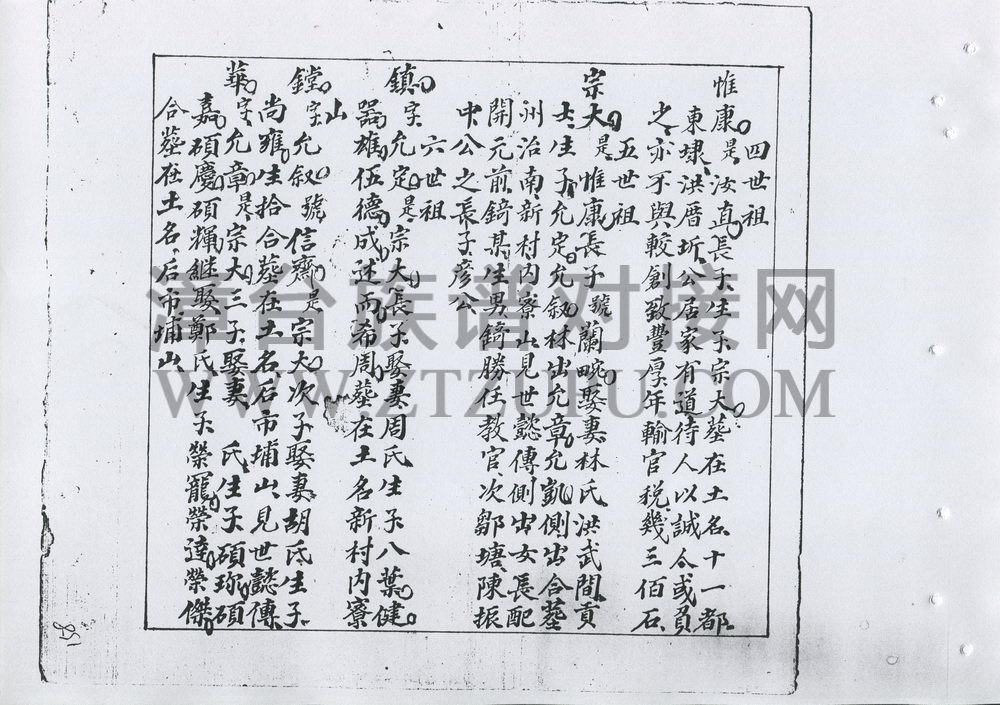 四世祖
惟康是汝直長子生子宗大墓在土名十一都
東埭洪厝坵公居家有道待人以誠人或負
之亦不與較創致豐厚年輸官稅幾三佰石
五世祖
宗大是惟康長子號蘭畹娶妻林氏洪武間貢
士生子允定允叙林出允章允凱側出合墓
州治南新村内寮山見世懿傳側出女長配
開元前錡某生男錡勝任教官次鄒塘陳振
中公之長子彥公
六世祖
鎮字允定是宗大長子娶妻周氏生子八葉健
器雄伍德成述而希周墓在土名新村内寮
山
鏜字允叙號信齋是宗大次子娶妻胡氏生子
尚雍生拾合墓在土名后市埔山見世懿傳
華字允章是宗大三子娶妻 氏生子碩珎碩
嘉碩慶碩輝継娶鄭氏生子榮寵榮達榮傑
合墓在土名后市埔山
漳台族谱对接网
WWW.ZTZUPU.COM